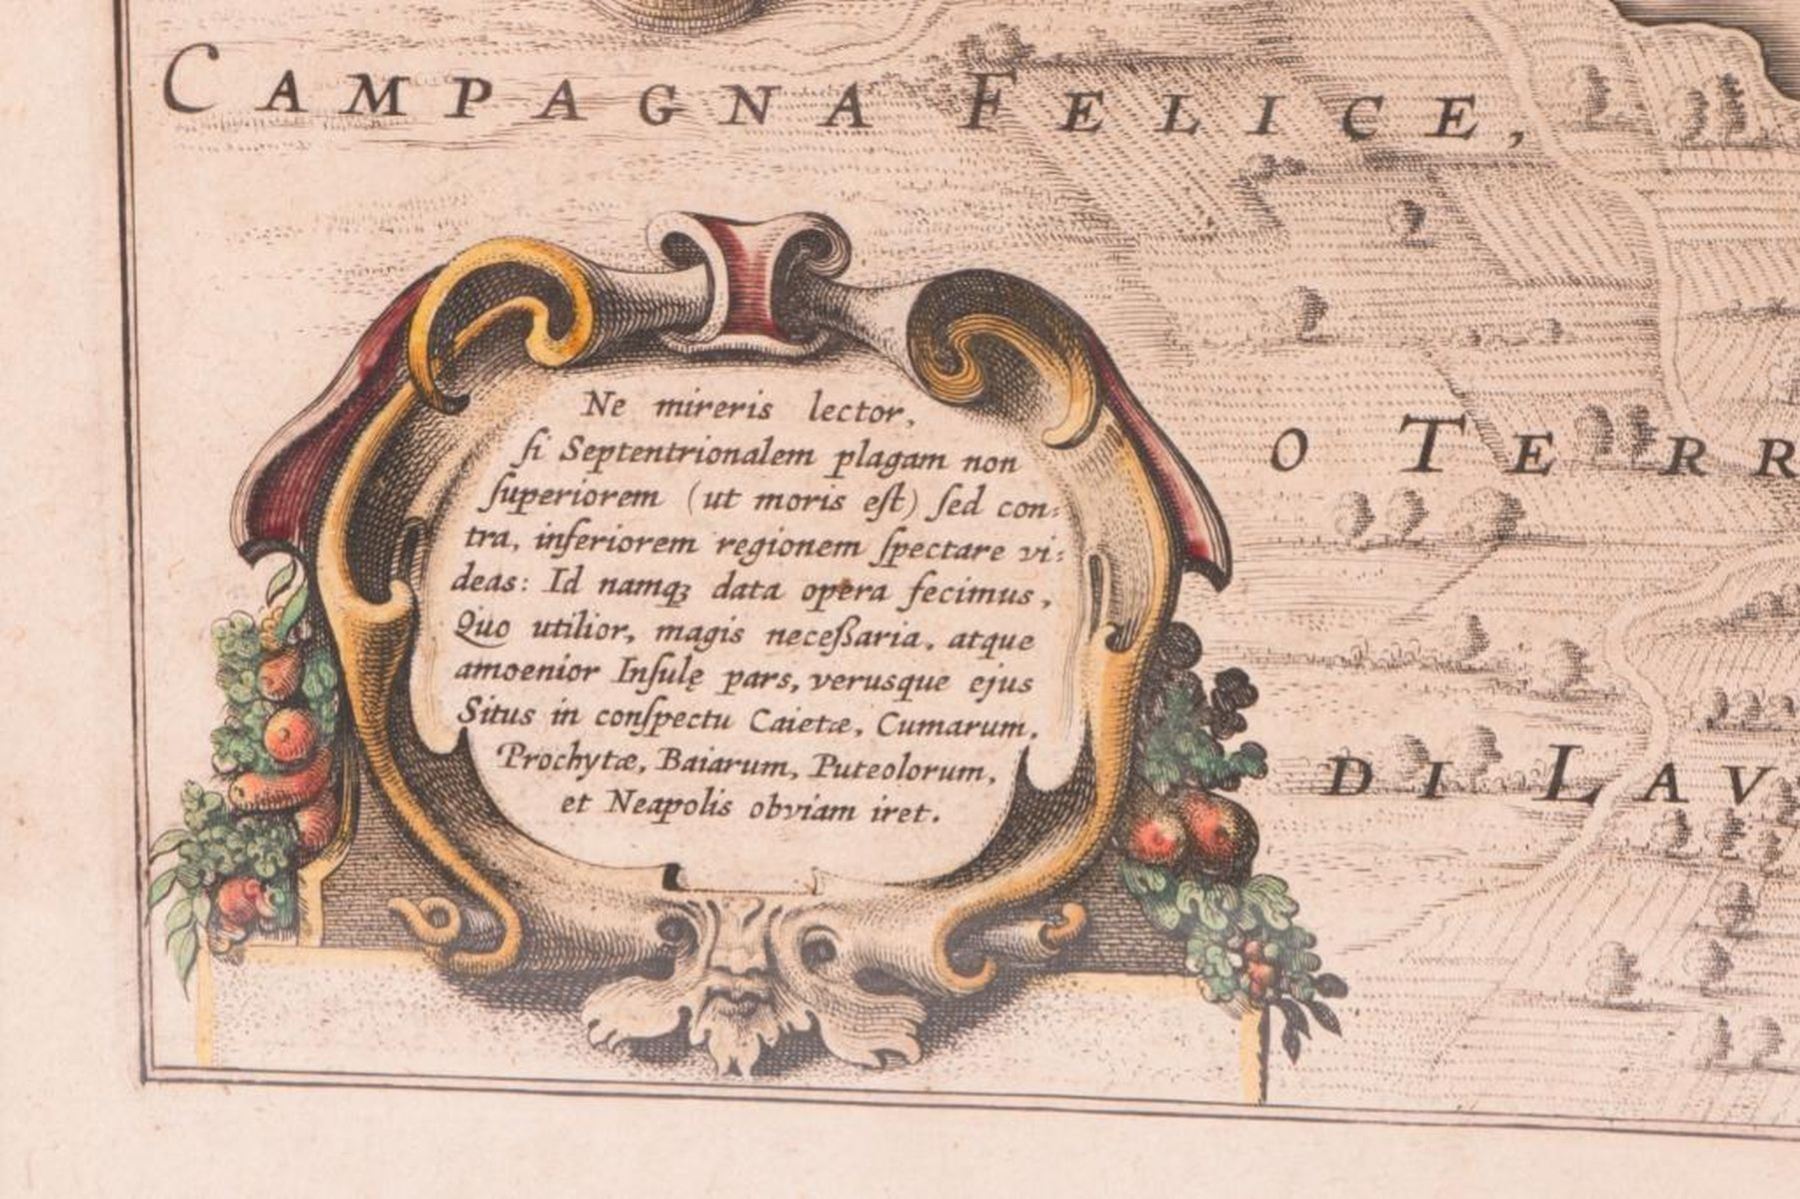 CAMPAGNA FELICE,
Ne mireris lector,
ſi Septentrionalem plagam non
ſuperiorem (ut moris eſt) ſed con:
tra, inferiorem regionem ſpectare vi:
deas: Id namqꝫ data opera fecimus,
Quo utilior, magis neceßaria, atque
amoenior Inſulę pars, verusque ejus
Situs in conſpectu Caietæ, Cumarum,
Prochytæ, Baiarum, Puteolorum,
et Neapolis obviam iret.
O TERR
DI LAV